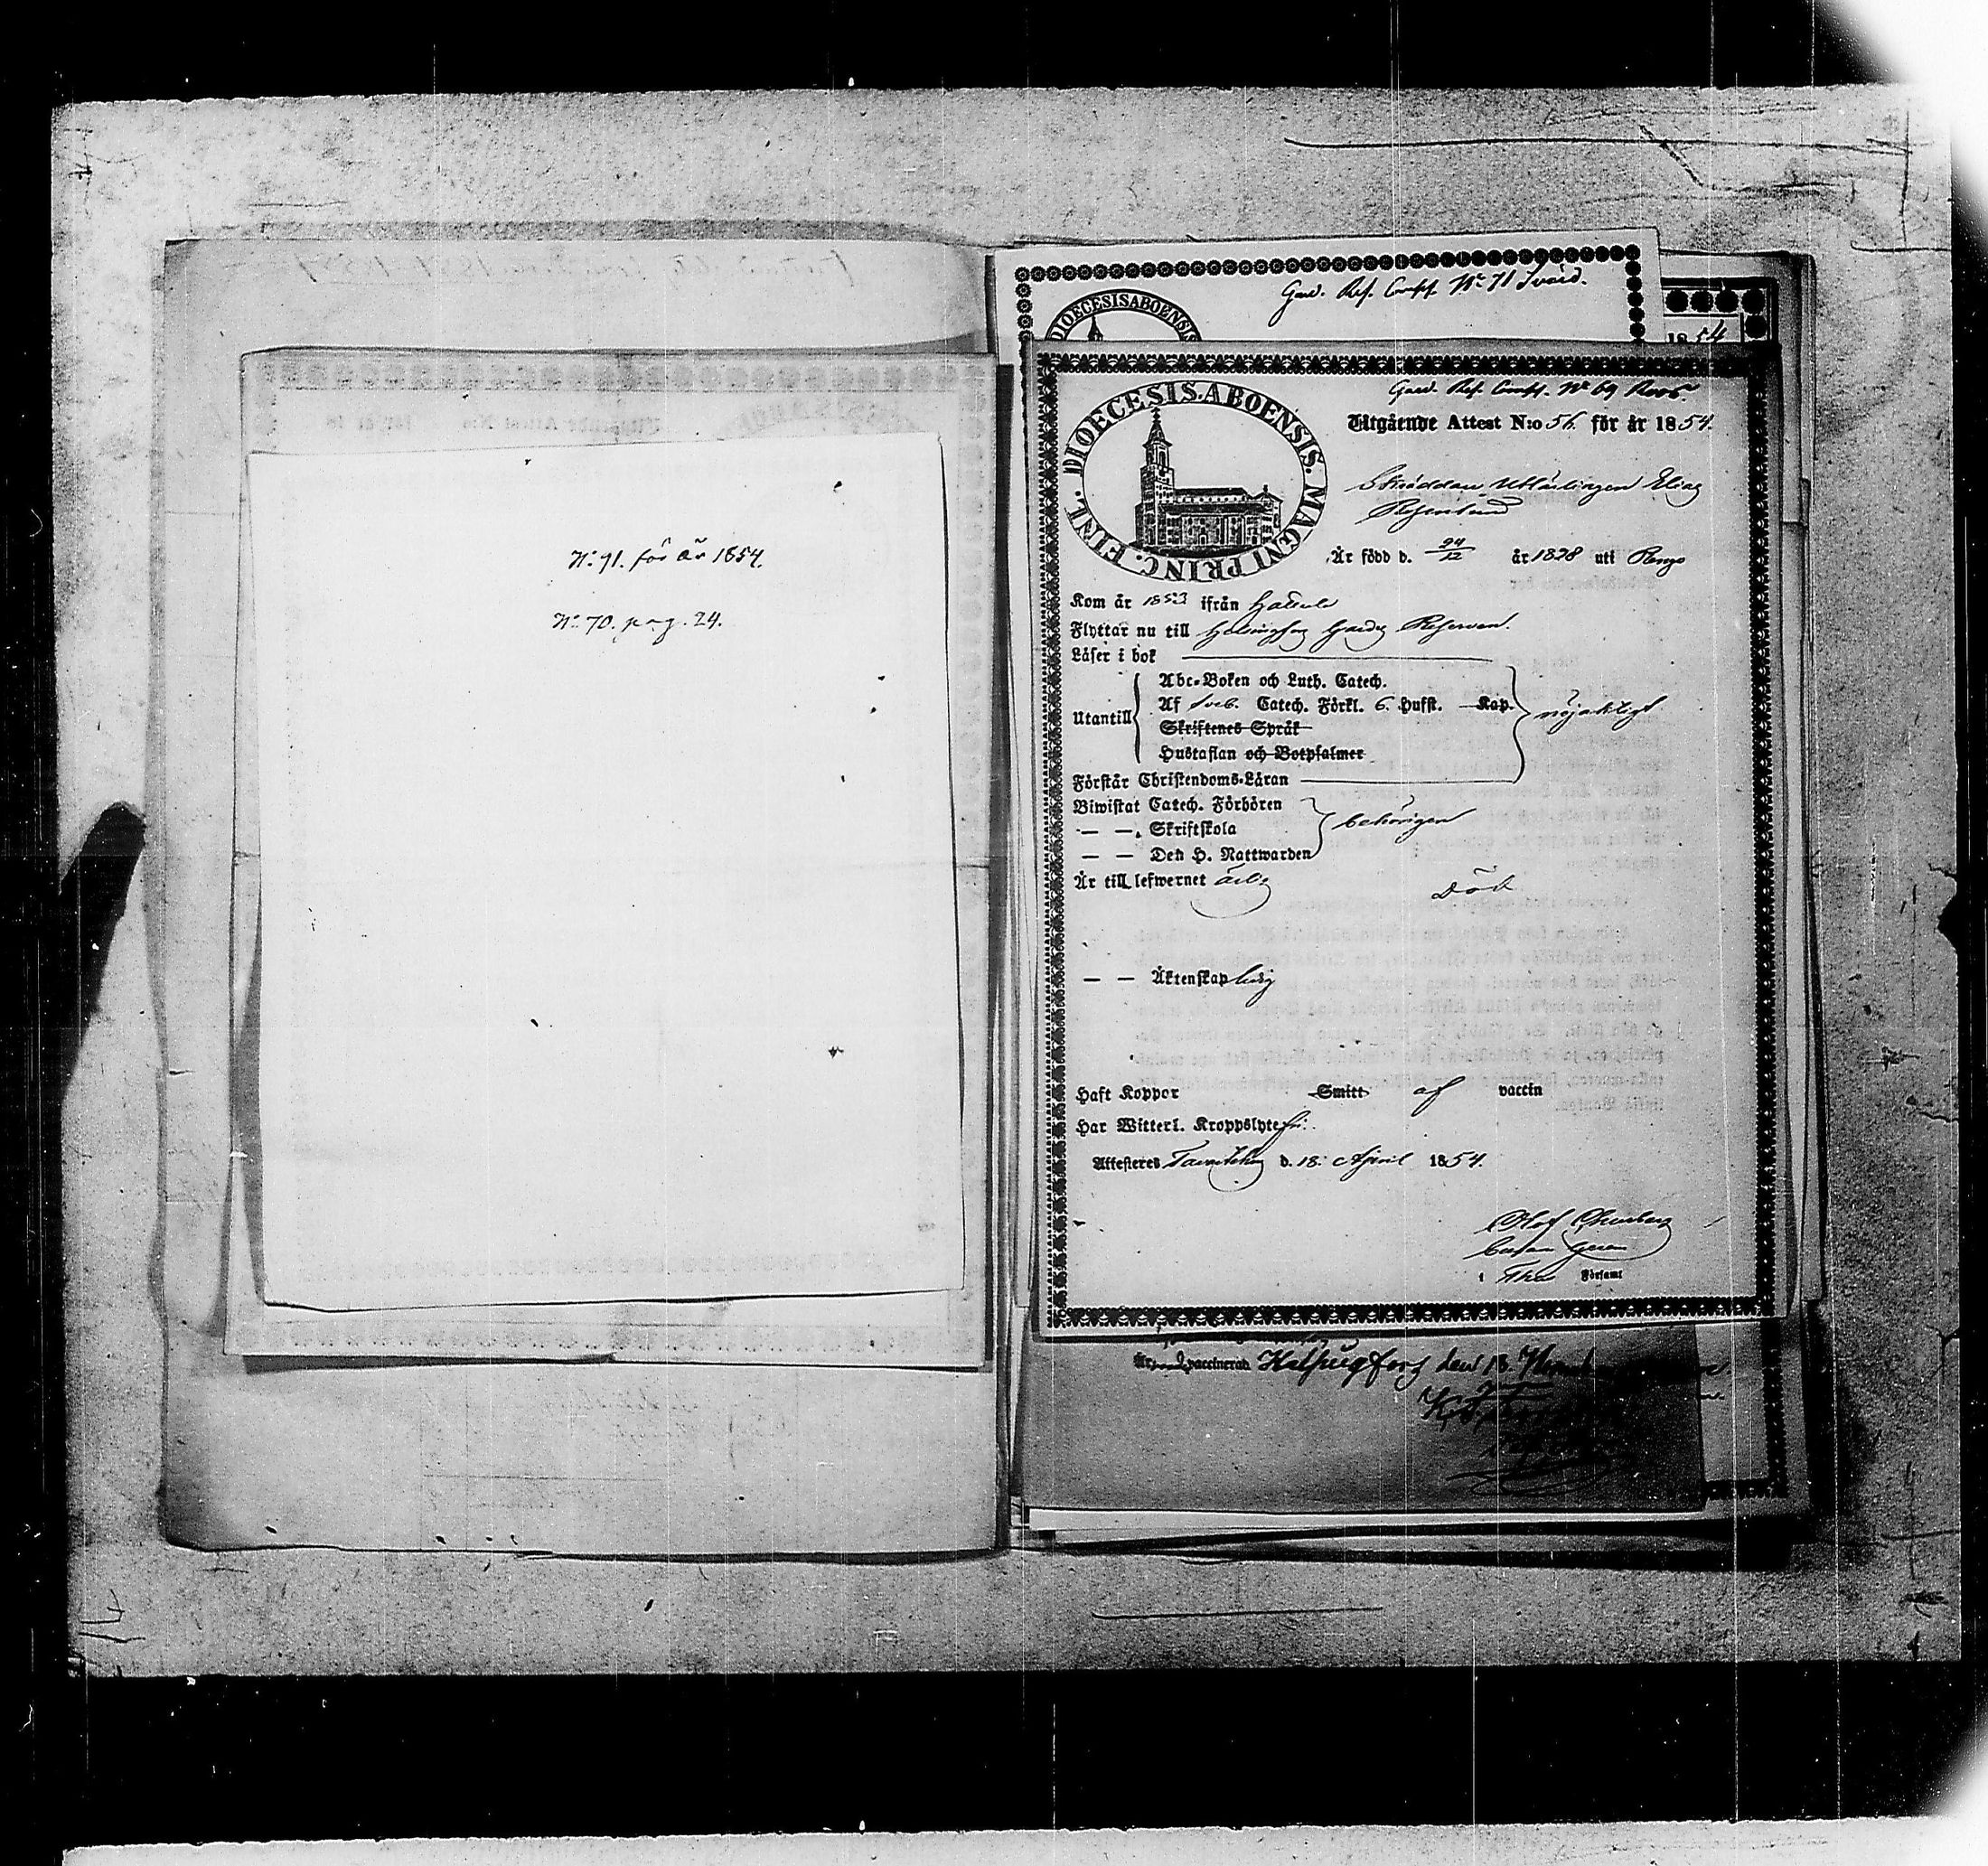 N:o 91. för år 1854.
N:o 70. pag. 24.
Gard. Res. Comp. N:o 71 Svärd.
DIOECESIS ABOENSIS
1854
Gard. Res. Comp. No 69 Roos.
DIOECESIS. ABOENSIS. MAGNI PRINC. FINL.
Utgående Attest N:o 56. för år 1854.
Skräddare Utlärlingen Elias
Rosenlund
Är född d. 24/12 år 1828 uti Rengo
Kom år 1853 ifrån Hattula
Flyttar nu till Helsingfors Gardes Reserven.
Läser i bok
Utantill
Abc-Boken och Luth. Catech.
Af Sveb. Catech. Förkl. 6. Hufst. Kap.
Skriftenes Språk
Hustaflan och Botpsalmer
nöjaktigt
Förstår Christendoms-Läran
Biwistat Catech. Förhören
— — Skriftskola
— — Den H. Nattwarden
behörigen
Är till lefwernet ärlig
Död
— — Äktenskap ledig
Haft Koppor Smitt af vaccin
Har Witterl. Kroppslyte fri.
Attesteras Tavastehus d. 18. April 1854.
Olof
i Församl
vaccinerad Helsingfors den 13.